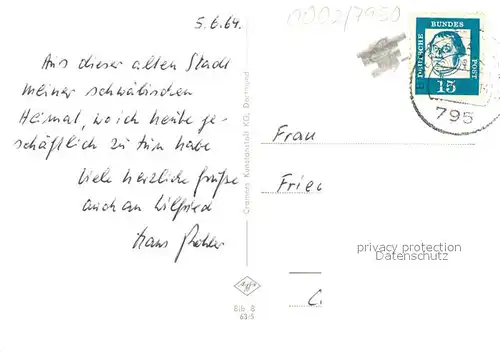 5.6.64.
0002/7950
Aus dieser alten Stadt
meiner schwäbischen
Heimat, wo ich heute ge-
schäftlich zu tun habe
viele herzliche Grüße
auch an Wilfried
Hans
Cramers Kunstanstalt KG, Dortmund
Agfa
Bib 8
63/5
DEUTSCHE BUNDES POST
15
795
Frau
Fried
C.
privacy protection
Datenschutz